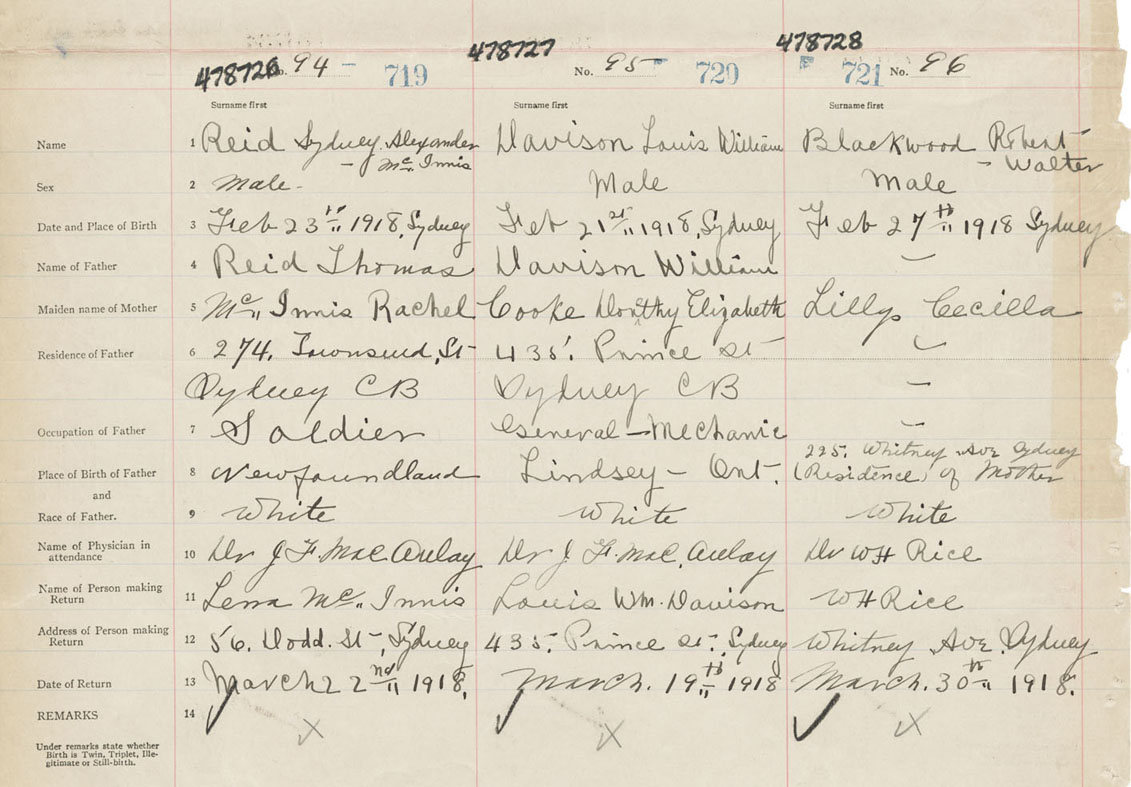 478726 478727 478728
No. 94 - 719 No. 95 - 720 721 No. 96
Surname first Surname first Surname first
Name 1 Reid Sydney Alexander Davison Louis William Blackwood Robert
- Mc Innis - Walter
Sex 2 Male - Male Male
Date and Place of Birth 3 Feb 23 1918, Sydney Feb 21st 1918, Sydney Feb 27th 1918 Sydney
Name of Father 4 Reid Thomas Davison William -
Maiden name of Mother 5 Mc Innis Rachel Cooke Dorothy Elizabeth Lillys Cecilla
Residence of Father 6 274. Townsend, St 435. Prince St -
Sydney CB Sydney CB -
Occupation of Father 7 Soldier General - Mechanic -
225. Whitney Ave Sydney
Place of Birth of Father 8 Newfoundland Lindsey - Ont. (Residence) of Mother
and
Race of Father. 9 White White White
Name of Physician in
attendance 10 Dr J F. Mac Aulay Dr J F. Mac, Aulay Dr WH Rice
Name of Person making
Return 11 Lena Mc Innis Louis Wm. Davison WH Rice
Address of Person making
Return 12 56. Dodd. St, Sydney 435. Prince St, Sydney Whitney Ave. Sydney
Date of Return 13 March 22nd 1918, March. 19th 1918 March. 30th 1918.
REMARKS 14 X X X
Under remarks state whether
Birth is Twin, Triplet, Ille-
gitimate or Still-birth.